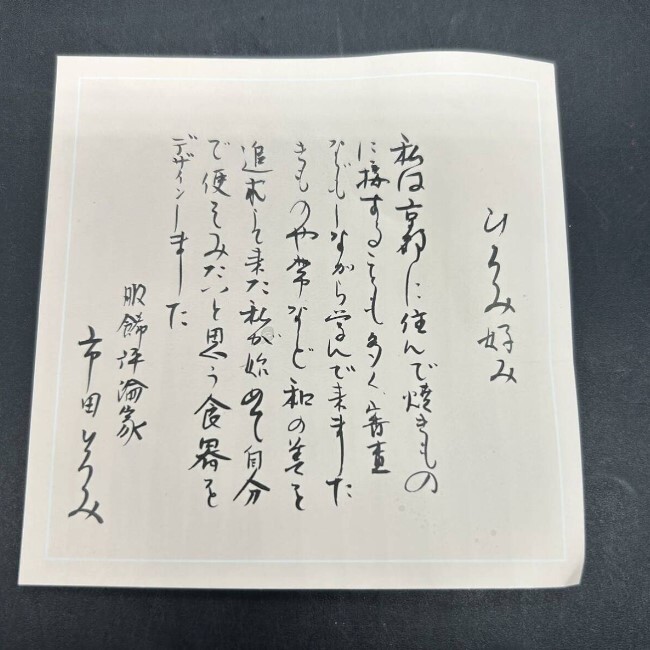 ひろみ好み
私は京都に住んで焼きもの
に接することも多く、審査
などもしながら学んで来ました
きものや帯など和の美を
追求して来た私が始めて自分
で使ってみたいと思う食器を
デザインしました
服飾評論家
市田ひろみ